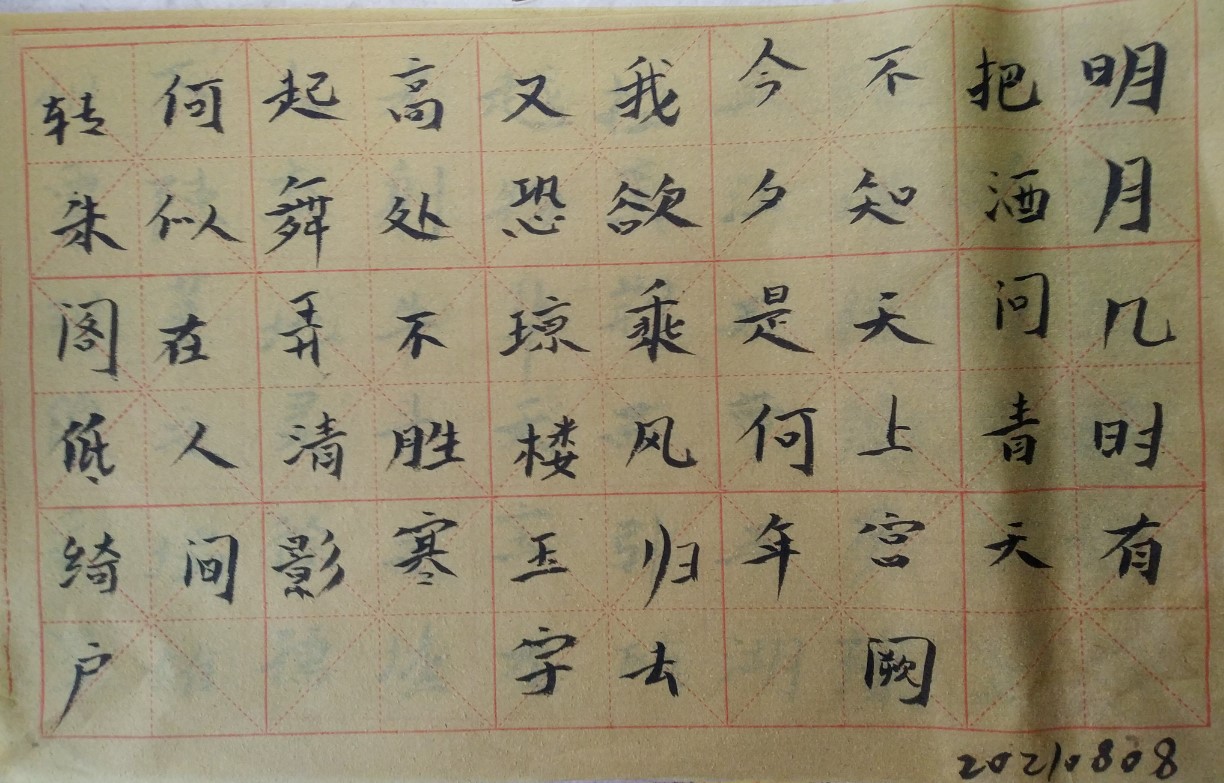 明月几时有
把酒问青天
不知天上宫阙
今夕是何年
我欲乘风归去
又恐琼楼玉宇
高处不胜寒
起舞弄清影
何似在人间
转朱阁低绮户
20210808